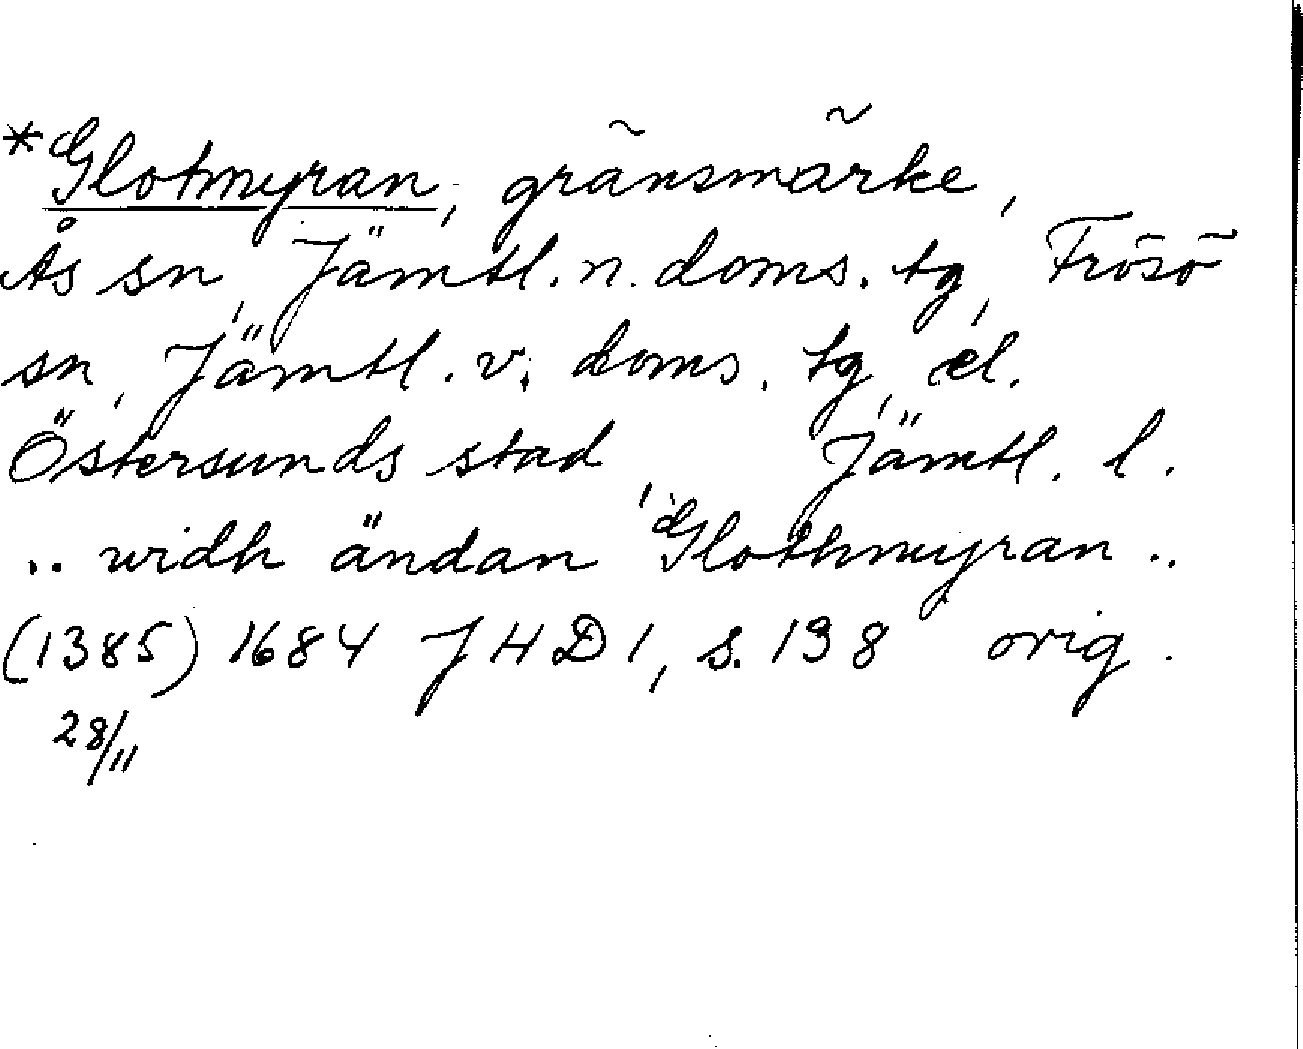 *Glotmyran, gränsmärke,
Ås sn, Jämtl. n. doms. tg, Frösö
sn, Jämtl. v. doms. tg, el.
Östersunds stad, Jämtl. l.
.. widh ändan Glothmyran ..
(1385) 1684 JHD 1, s. 138 orig.
28/11